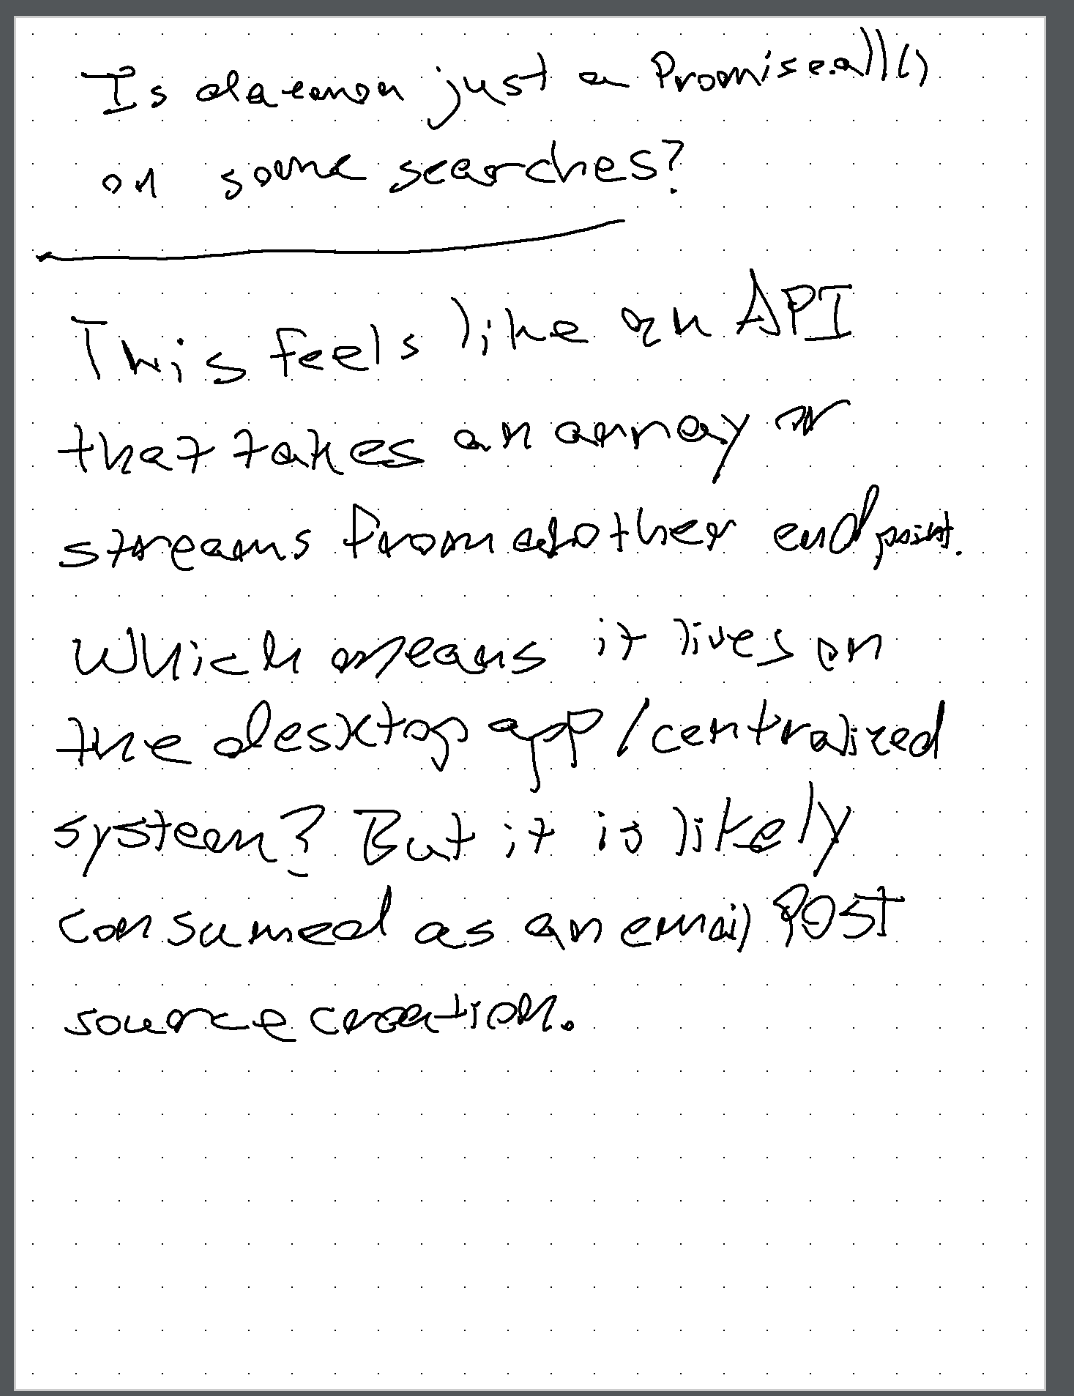 Is daemon just a Promise.all()
on some searches?
This feels like an API
that takes an array or
streams from another endpoint.
Which means it lives on
the desktop app/centralized
system? But it is likely
consumed as an email POST
source creation.